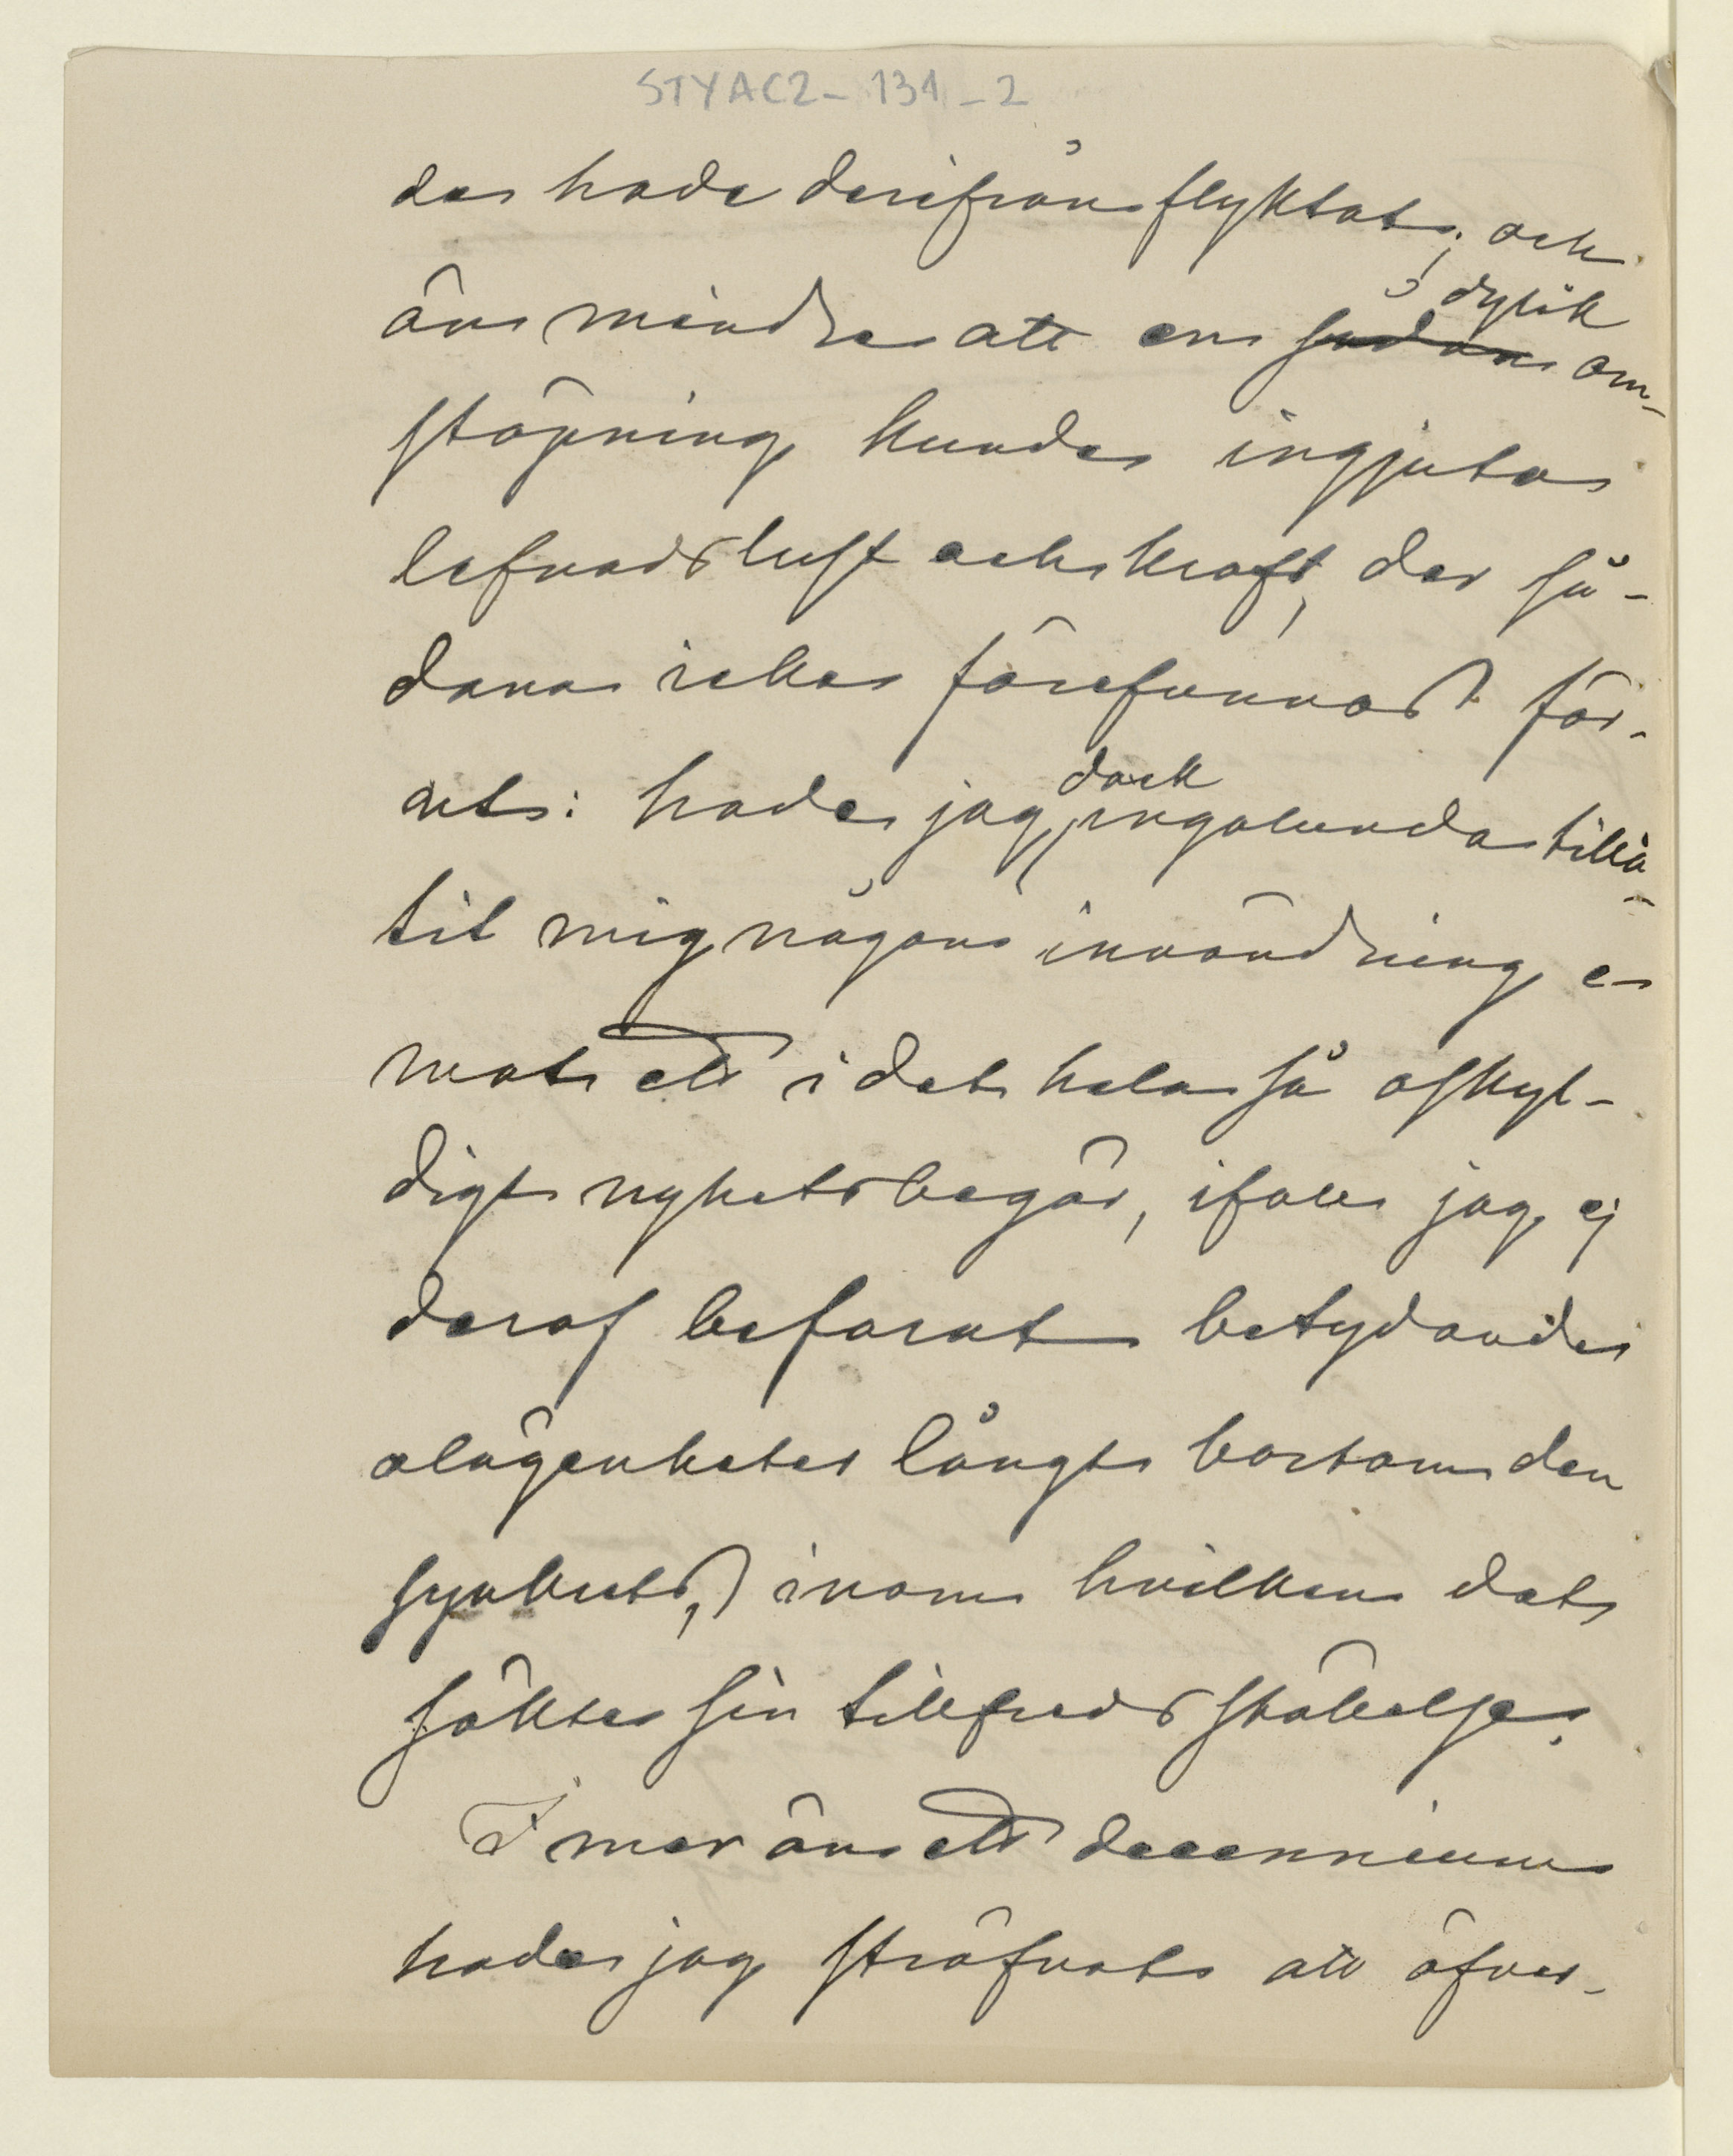 STYAC2-131-2
de hade derifrån flyktat; och
än mindre att en sådan dylik om-
stöpning kunde ingjuta
lefnadslust och kraft, der så-
dana icke förefunnos för-
ut: hade jag dock ingalunda tillå-
tit mig någon invändning e-
mot ett i det hela så oskyl-
digt nyhetsbegär, ifall jag ej
deraf befarat betydande
olägenheter långt bortom den
synkrets, inom hvilken det
sökte sin tillfredsställelse.
I mer än ett decennium
hade jag sträfvat att öfver-